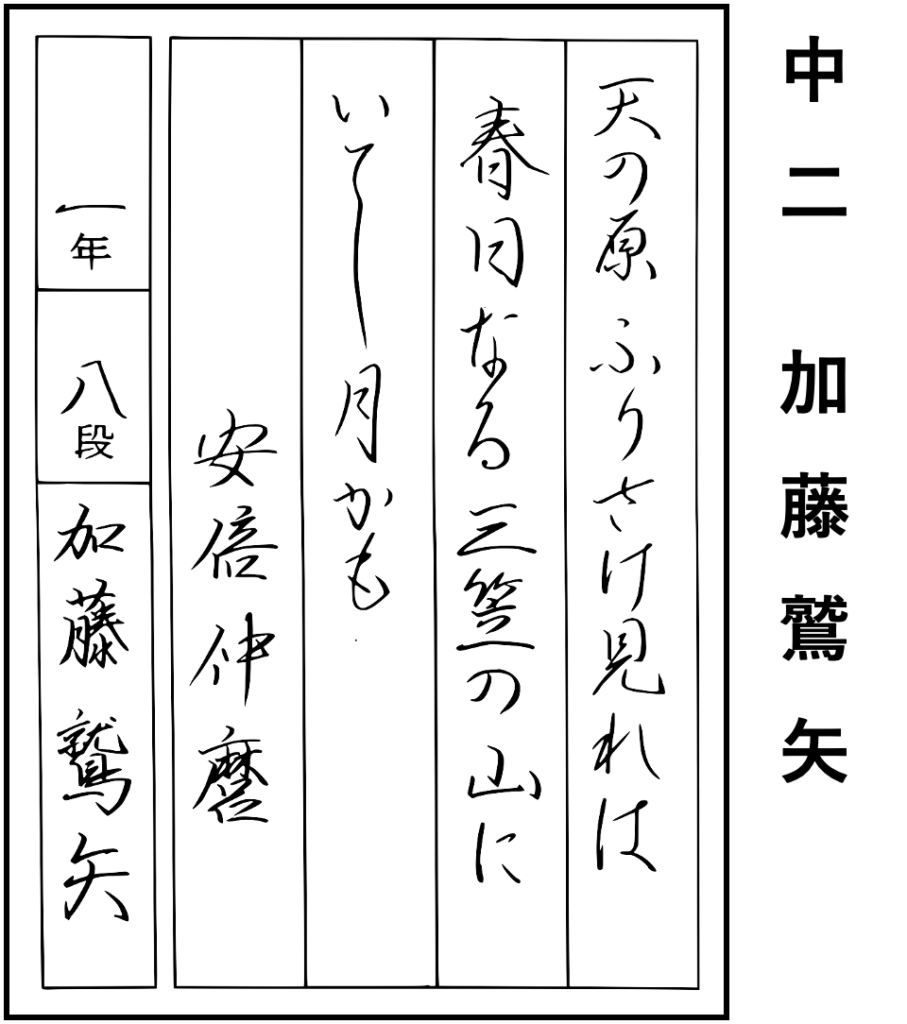 中二 加藤鷲矢
天の原ふりさけ見れは
春日なる三笠の山に
いてし月かも
安倍仲麿
一年 八段 加藤鷲矢